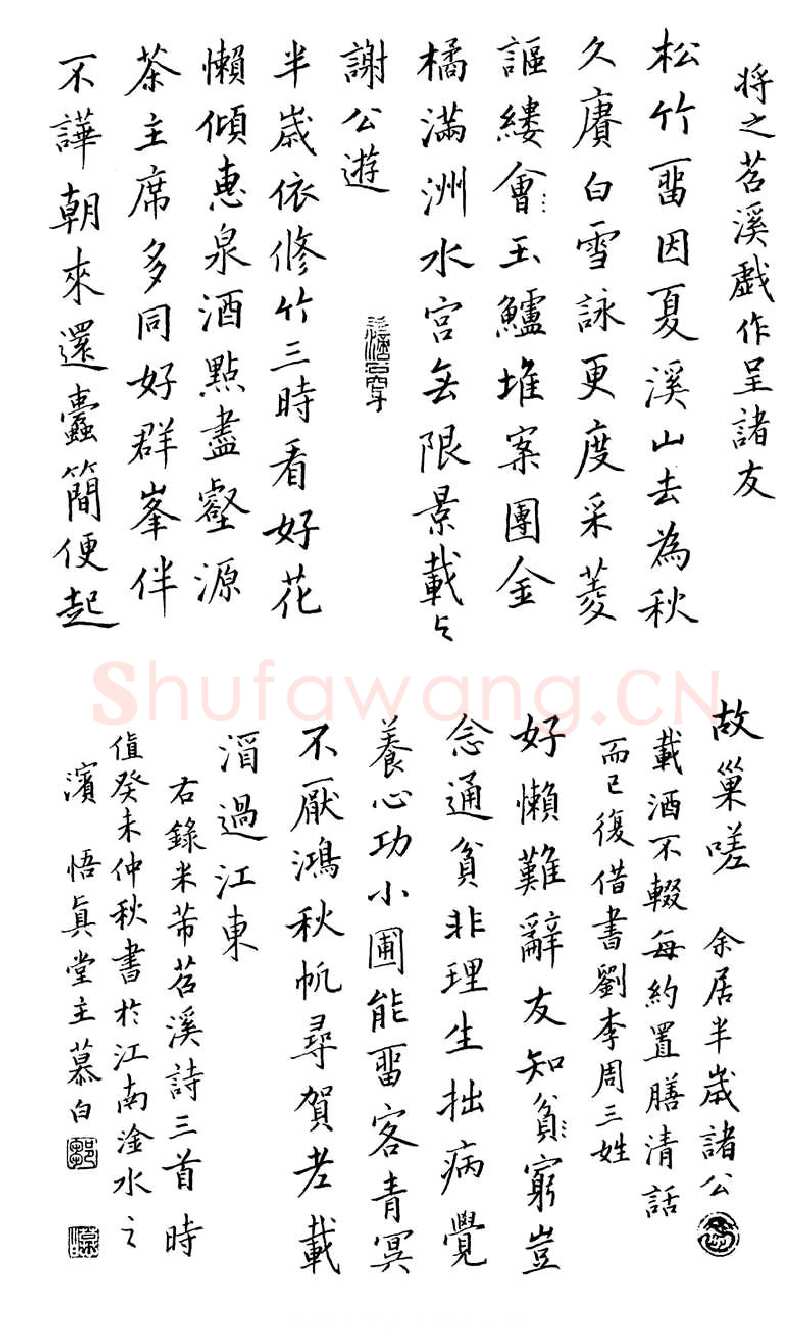 将之苕溪戯作呈諸友
松竹畱因夏溪山去為秋
久賡白雪詠更度采菱
謳縷會玉鱸堆案團金
橘滿洲水宮無限景載与
謝公遊
半歲依修竹三時看好花
懶傾惠泉酒點盡壑源
茶主席多同好群峯伴
不譁朝來還蠹簡便起
故巢嗟 余居半歲諸公
載酒不輟每約置膳清話
而已復借書劉李周三姓
好懶難辭友知貧窮豈
念通貧非理生拙病覺
養心功小圃能畱客青冥
不厭鴻秋帆尋賀老載
酒過江東
右錄米芾苕溪詩三首 時
值癸未仲秋書於江南淦水之
濱 悟真堂主慕白
Shufawang.CN